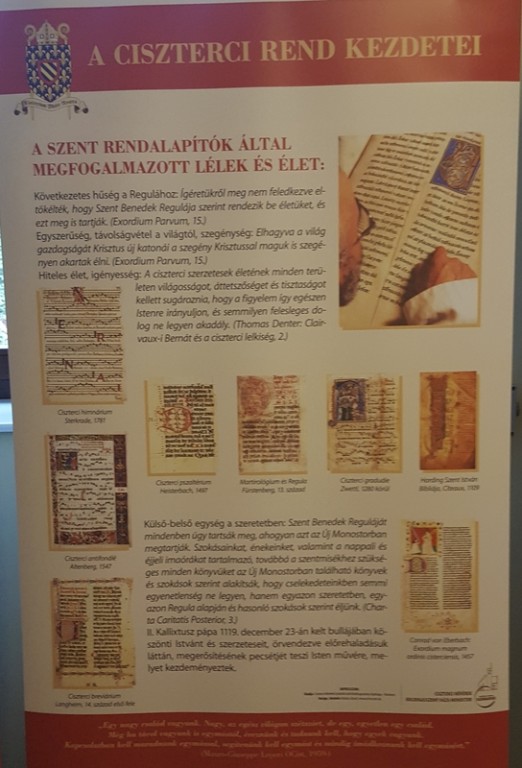 A CISZTERCI REND KEZDETEI
A SZENT RENDALAPÍTÓK ÁLTAL
MEGFOGALMAZOTT LÉLEK ÉS ÉLET:
Következetes hűség a Regulához: Ígéretükről meg nem feledkezve el-
tökélték, hogy Szent Benedek Regulája szerint rendezik be életüket, és
ezt meg is tartják. (Exordium Parvum, 15.)
Egyszerűség, távolságvétel a világtól, szegénység: Elhagyva a világ
gazdagságát Krisztus új katonái a szegény Krisztussal maguk is szegé-
nyen akartak élni. (Exordium Parvum, 15.)
Hiteles élet, igényesség: A ciszterci szerzetesek életének minden terü-
leten világosságot, áttetszőséget és tisztaságot
kellett sugároznia, hogy a figyelem így egészen
Istenre irányuljon, és semmilyen felesleges do-
log ne legyen akadály. (Thomas Denter: Clair-
vaux-i Bernát és a ciszterci lelkiség, 2.)
Ciszterci himnárium
Sterkrade, 1781
Ciszterci pszaltérium
Heisterbach, 1497
Martirológium és Regula
Fürstenberg, 15. század
Ciszterci graduále
Zwettl, 1280 körül
Harding Szent István
Bibliája, Citeaux, 1109
Ciszterci antifonálé
Altenberg, 1547
Külső-belső egység a szeretetben: Szent Benedek Reguláját
mindenben úgy tartsák meg, ahogyan azt az Új Monostorban
megtartják. Szokásainkat, énekeinket, valamint a nappali és
éjjeli imaórákat tartalmazó, továbbá a szentmisékhez szüksé-
ges minden könyvüket az Új Monostorban található könyvek
és szokások szerint alakítsák, hogy cselekedeteinkben semmi
egyenetlenség ne legyen, hanem egyazon szeretetben, egy-
azon Regula alapján és hasonló szokások szerint éljünk. (Char-
ta Caritatis Posterior, 3.)
II. Kallixtusz pápa 1119. december 23-án kelt bullájában kö-
szönti Istvánt és szerzeteseit, örvendezve előrehaladásuk
láttán, megerősítésének pecsétjét teszi Isten művére, me-
lyet kezdeményeztek.
Conrad von Eberbach:
Exordium magnum
ordinis cisterciensis, 1457
Ciszterci breviárium
Langheim, 14. század első fele
„Egy nagy család vagyunk. Nagy, az egész világon szétszórt, de egy, egyetlen egy család.
Még ha távol vagyunk is egymástól, éreznünk és tudnunk kell, hogy egyek vagyunk.